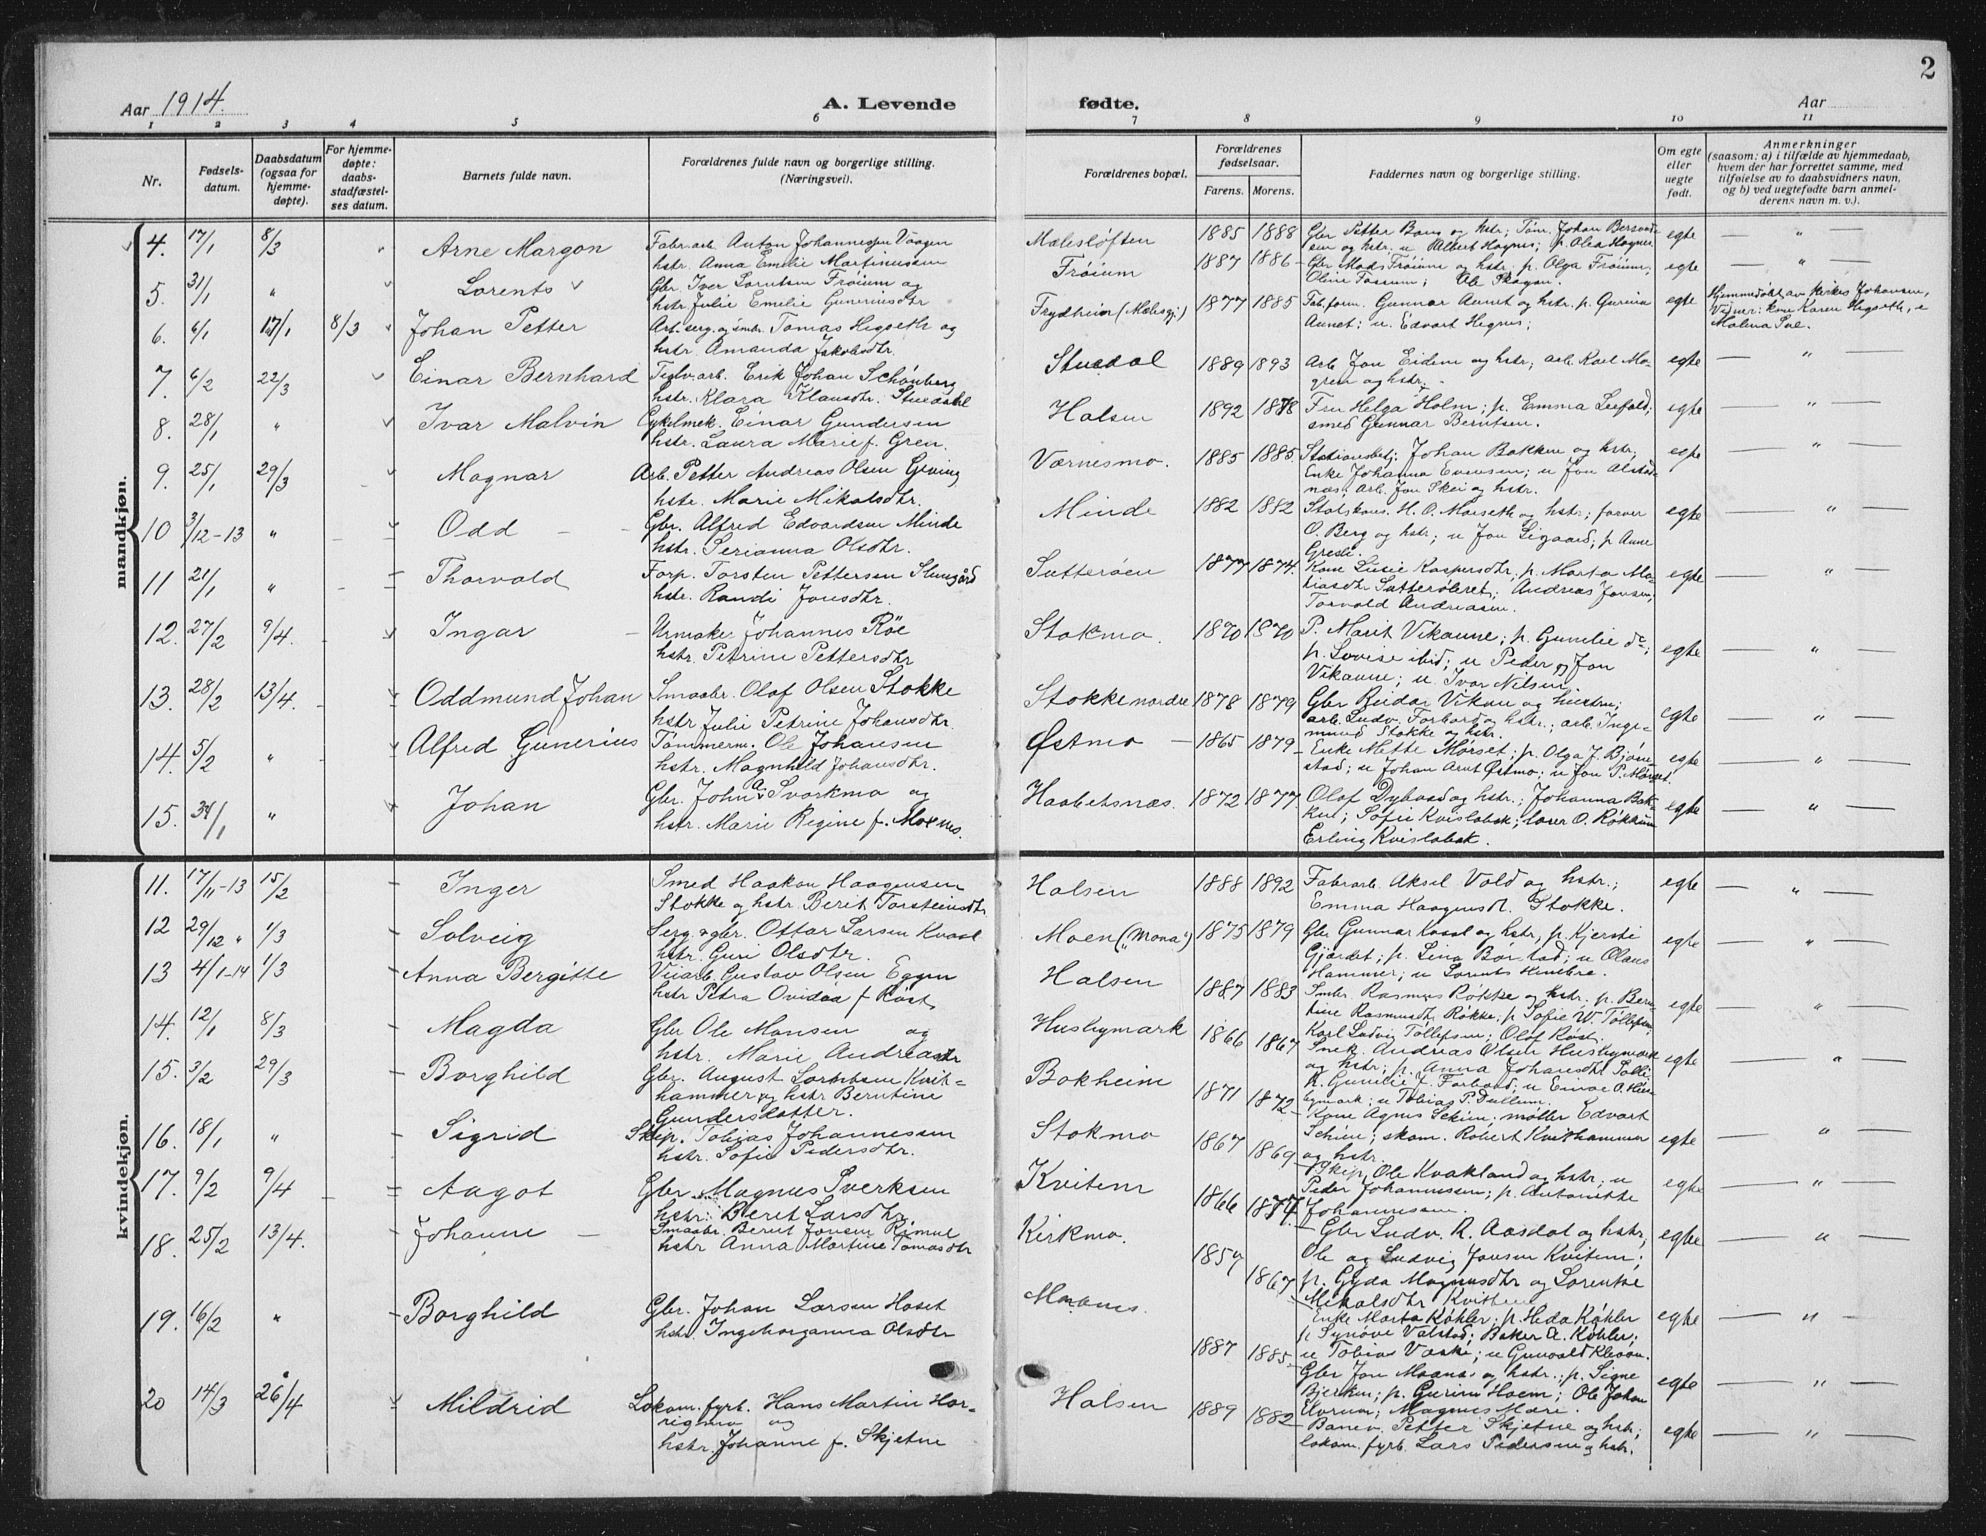 2
Aar 1914.
A. Levende fødte.
Aar
1 2 3 4 5 6 7 8 9 10 11
Nr.
Fødsels-
datum.
Daabsdatum
(ogsaa for
hjemme-
døpte).
For hjemme-
døpte:
daabs-
stadfæstel-
ses datum.
Barnets fulde navn.
Forældrenes fulde navn og borgerlige stilling.
(Næringsvei).
Forældrenes bopæl.
Forældrenes
fødselsaar.
Farens. Morens.
Faddernes navn og borgerlige stilling.
Om egte
eller
uegte
født.
Anmerkninger
(saasom: a) i tilfælde av hjemmedaab,
hvem der har forrettet samme, med
tilføielse av to daabsvidners navn,
og b) ved uegtefødte barn anmel-
derens navn m. v.).
mandkjøn.
4. 17/1 8/3 Arne Margon
Fabr.arb. Anton Johannessen Vaagen
hstr. Anna Emelie Martinussen
Mælesløften 1885 1888
Gbr Petter Bang og hstr; Tøm. Johan Bersvend-
sen og hstr. u Albert Hognes; p. Olea Hognes
egte — " —
5. 31/1 " Lorents
Gbr. Iver Lorntsen Frøium og
hstr Julie Emelie Guneriusdtr
Frøium 1887 1886
Gbr Mads Frøium og hstr. p. Olga Frøium;
Oline Fossum; Ole Skogan.
egte — " —
6. 6/1 17/1 8/3 Johan Petter
Arb.serg. og smbr. Tomas Hegseth og
hstr. Amanda Jakobsdtr.
Frydheim (Mælesgj.) 1877 1885
Fab.form. Gunnar Aunet og hstr. p. Gurina
Aunet; u. Edvart Hegnes;
egte
Hjemmedøbt av Kirkes. Johansen,
Vidner: kone Karen Hegseth, u
Malena Sve.
7. 6/2 22/3 Einar Bernhard
Teglv.arb. Erik Johan Schønberg
hstr. Klara Klausdtr. Stuedahl
Stuedal 1889 1893
Arb. Jon Eidem og hstr; arb. Karl Mo-
gren og hstr.
egte — " —
8. 28/1 " Ivar Malvin
Cykelmek. Einar Gundersen
hstr. Laura Marie f. Gren.
Halsen 1892 1888
Fru Helga Holm; p. Emma Leefald;
smed Gunnar Berntsen.
egte — " —
9. 25/1 29/3 Magnar
Arb. Petter Andreas Olsen Geving
hstr. Marie Mikalsdtr.
Værnesmo. 1885 1885
Stationsbetj. Johan Bakken og hstr;
Enke Johanna Evensen; u Jon Alstad-
næs; Arb. Jon Skei og hstr.
egte — " —
10 3/12-13 " Odd
Gbr. Alfred Edvardsen Minde
hstr. Serianna Olsdtr.
Minde 1882 1882
Statskons. H. O. Morseth og hstr; farver
O. Berg og hstr; u Jon Ligaard; p Anne
Gresli.
egte — " —
11 21/1 " Thorvald
Forp. Torsten Pettersen Slungård
hstr. Randi Jonsdtr.
Sutterøen 1877 1874.
Kone Lusie Kaspersdtr. p. Marta Ma-
tiasdtr Sutterøleret; Andreas Jonsen;
Torvald Andreasen.
egte — " —
12. 27/2 9/4. Ingar
Urmaker Johannes Røe
hstr. Petrine Pettersdtr
Stokmo. 1870 1870
P. Marit Vikanne; p. Gunelie do;
p. Lovise ibid; u Peder og Jon
Vikanne; u. Ivar Nilsen
egte — " —
13. 28/2 13/4. Oddmund Johan
Smaabr. Olaf Olsen Stokke
hstr Julie Petrine Johansdtr.
Stokke nordre 1878 1879
Gbr Reidar Vikan og hustru;
arb. Ludv. Forbord og hstr.; arb. Inge-
mund Stokke og hstr.
egte — " —
14. 5/2 " Alfred Gunerius
Tømmerm. Ole Johansen
hstr. Magnhild Johansdtr.
Østmo 1865 1879
Enke Mette Mørset; p. Olga J. Bjørn-
stad; u Johan Arnt Østmo; u Jon P. Mørset.
egte — " —
15. 31/1 " Johan
Gbr. John A. Svorkmo og
hstr. Marie Regine f. Moxnes.
Haabetsnæs. 1872 1877
Olaf Dybvad og hstr.; Johanna Bak-
ken; Sofie Kvislabak; lærer O. Røkkum
Erling Kvislabak.
egte — " —
kvindekjøn.
11. 17/11-13 15/2 Inger
Smed Haakon Haagensen
Stokke og hstr Beret Torsteinsdtr
Halsen 1888 1892
Fabr.arb. Aksel Vold og hstr.;
Emma Haagensdt. Stokke.
egte — " —
12 29/12 " 1/3 Solveig
Serg. & gbr. Ottar Larsen Kvaal
hstr. Guri Olsdtr.
Moen ("Mona") 1875 1879
Gbr Gunnar Kvaal og hstr, p. Kjersti
Gjørdet; p. Lina Børstad; u Olaus
Hammer; u Lorents
egte — " —
13 4/1-14 1/3 Anna Bergitte
Veiarb. Gustav Olsen Eggen
hstr Petra Ovidea f Røst
Halsen 1887 1883
Smbr. Rasmus Røkke og hstr; p. Bern-
tine Rasmusdt. Røkke; p Sofie W. Tollefsen;
Karl Ludvig Tollefsen; Olof Røst.
egte — " —
14. 12/1 8/3 Magda
Gbr Ole Monsen og
hstr. Marie Andreasdtr
Husbymark 1866 1867
Snek. Andreas Olsen Husbymark
og hstr; p. Anna Johansdt.
p. Gunelie f. Forbord; u Einar O. Hus-
bymark; u Tobias P. Dullum.
egte — " —
15. 3/2 29/3 Borghild
Gbr. August Lorntsen Kvit-
hammer og hstr Berntine
Gundersdatter.
Bokheim 1871 1872
Kone Agnes Schien; møller Edvart
Schien; skom. Robert Kvithammer
og hstr.
egte — " —
16. 18/1 " Sigrid
Skip. Tobias Johannessen
hstr. Sofie Pedersdtr.
Stokmo 1867 1869
Skip, Ole Kvakland og hstr; u
Peder Johannessen; p. Antonette
Johannessen.
egte — " —
17. 9/2 9/4 Aagot
Gbr Magnus Sverksen
hstr: Beret Larsdtr.
Kvitem 1866 1874.
Gbr Ludv. R. Aasdal og hstr,
Ole og Ludvig Jonsen Kvitem;
p. Gyda Magnusdtr og Lorentse
Mikalsdtr
egte — " —
18. 25/2 13/4. Johanne
Smaabr. Bernt Jonsen Rømul
hstr Anna Martine Tomasdtr
Kirkmo. 1859 1867
Enke Marta Køhler; p. Heda Køhler
p Synøve Valstad; Baker A. Køhler;
u Tobias Væske; u Gunvald
egte — " —
19. 16/2 " Borghild
Gbr. Johan Larsen Hoset
hstr. Ingeborganna Olsdtr
Moanes. 1887 1885
Gbr Jon Moanes og hstr.; p. Signe
Bjerken; p. Gurine Hoem; Ole Johan
Magnus Mære.
egte — " —
20 14/3 26/4 Mildrid
Lokom.fyrb. Hans Martin Hor-
rigmo og
hstr. Johanne f. Skjetne
Halsen 1889 1882
Banev. Petter Skjetne og hstr;
lokom. fyrb. Lars Pedersen og hstr.
egte — " —